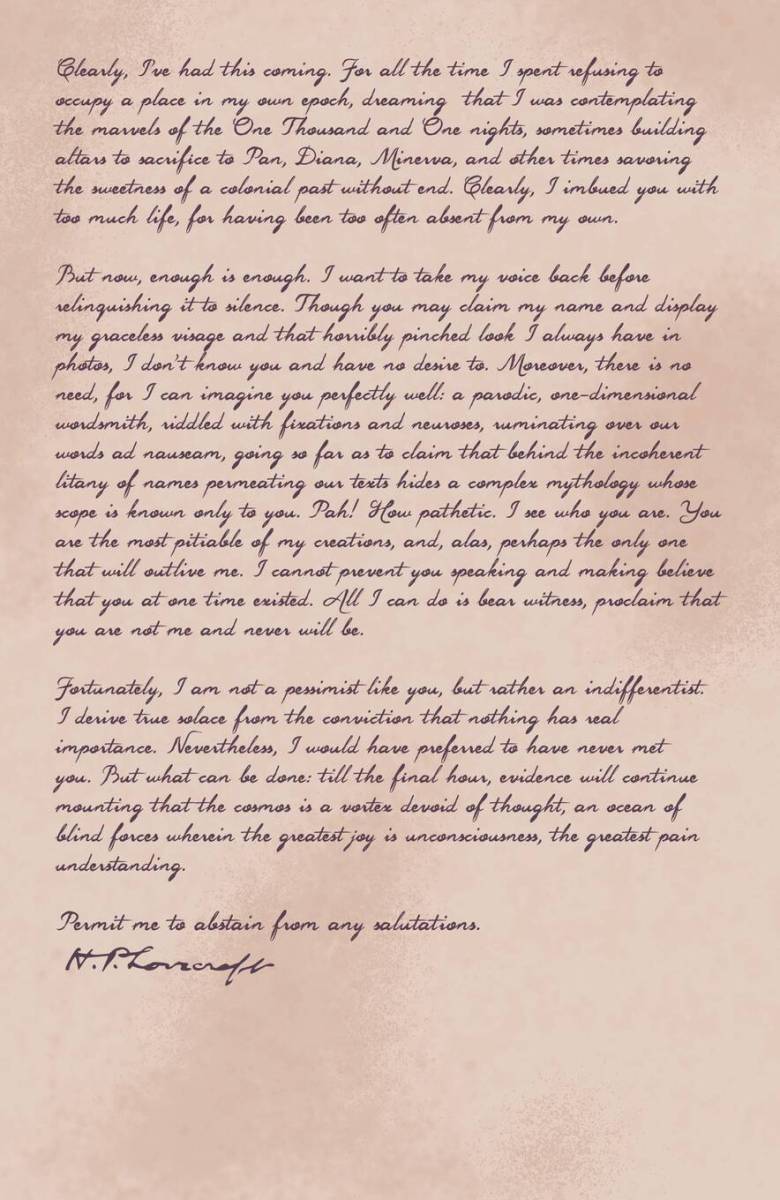 Clearly, I've had this coming. For all the time I spent refusing to
occupy a place in my own epoch, dreaming that I was contemplating
the marvels of the One Thousand and One nights, sometimes building
altars to sacrifice to Pan, Diana, Minerva, and other times savoring
the sweetness of a colonial past without end. Clearly, I imbued you with
too much life, for having been too often absent from my own.

But now, enough is enough. I want to take my voice back before
relinquishing it to silence. Though you may claim my name and display
my graceless visage and that horribly pinched look I always have in
photos, I don't know you and have no desire to. Moreover, there is no
need, for I can imagine you perfectly well: a parodic, one-dimensional
wordsmith, riddled with fixations and neuroses, ruminating over our
words ad nauseam, going so far as to claim that behind the incoherent
litany of names permeating our texts hides a complex mythology whose
scope is known only to you. Pah! How pathetic. I see who you are. You
are the most pitiable of my creations, and, alas, perhaps the only one
that will outlive me. I cannot prevent you speaking and making believe
that you at one time existed. All I can do is bear witness, proclaim that
you are not me and never will be.

Fortunately, I am not a pessimist like you, but rather an indifferentist.
I derive true solace from the conviction that nothing has real
importance. Nevertheless, I would have preferred to have never met
you. But what can be done: till the final hour, evidence will continue
mounting that the cosmos is a vortex devoid of thought, an ocean of
blind forces wherein the greatest joy is unconsciousness, the greatest pain
understanding.

Permit me to abstain from any salutations.
H.P. Lovecraft